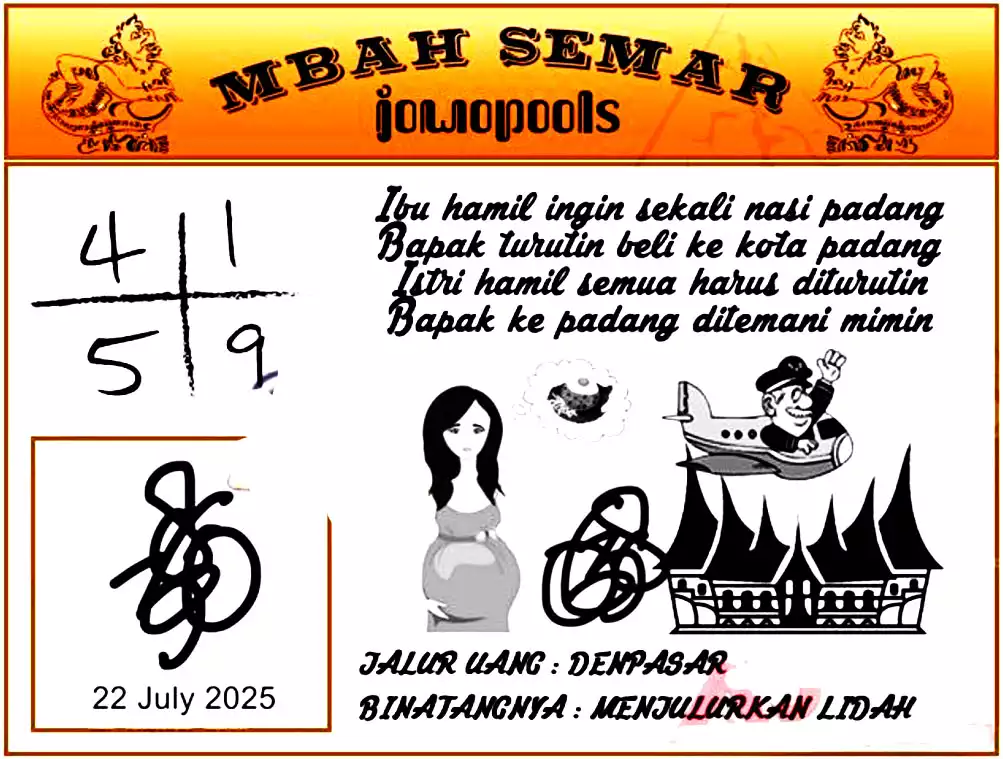 MBAH SEMAR
jowopools
4 1
5 9
Ibu hamil ingin sekali nasi padang
Bapak turutin beli ke kota padang
Istri hamil semua harus diturutin
Bapak ke padang ditemani mimin
22 July 2025
JALUR UANG : DENPASAR
BINATANGNYA : MENJULURKAN LIDAH